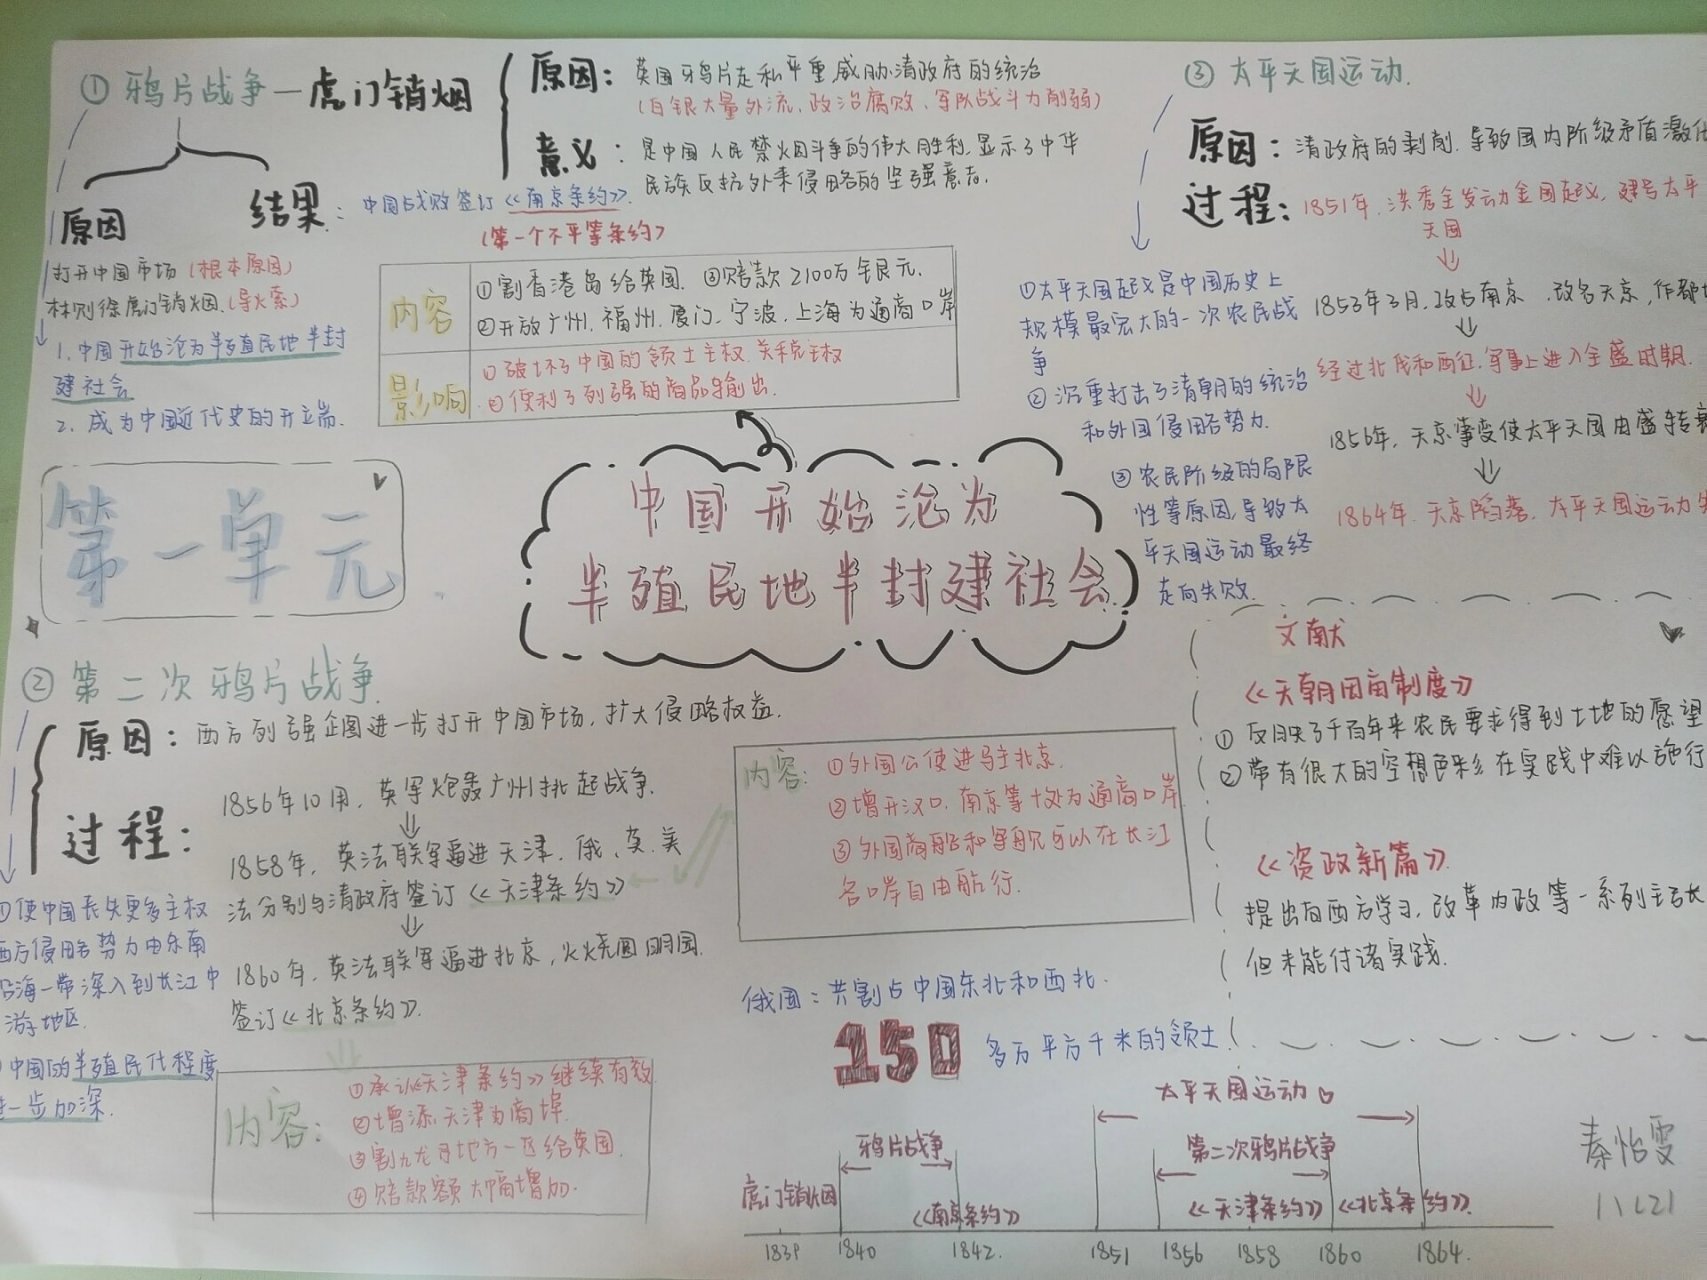 ① 鸦片战争—虎门销烟
原因：英国鸦片走私严重威胁清政府的统治
(白银大量外流，政治腐败，军队战斗力削弱)
意义：是中国人民禁烟斗争的伟大胜利，显示了中华
民族反抗外来侵略的坚强意志。
原因
打开中国市场（根本原因）
林则徐虎门销烟（导火索）
1.中国开始沦为半殖民地半封
建社会
2.成为中国近代史的开端.
结果：中国战败签订《南京条约》.
(第一个不平等条约)
内容
①割香港岛给英国. ③赔款2100万银元.
②开放广州，福州，厦门，宁波，上海为通商口岸
影响
①破坏了中国的领土主权 关税主权
②便利了列强的商品输出.
③ 太平天国运动.
原因：清政府的剥削，导致国内阶级矛盾激化
过程：1851年，洪秀全发动金田起义，建号太平
天国
1853年3月，攻占南京，改名天京，作都
经过北伐和西征，军事上进入全盛时期.
1856年，天京事变使太平天国由盛转衰
1864年，天京陷落，太平天国运动
①太平天国起义是中国历史上
规模最宏大的一次农民战
争
②沉重打击了清朝的统治
和外国侵略势力.
③农民阶级的局限
性等原因，导致太
平天国运动最终
走向失败.
第一单元
中国开始沦为
半殖民地半封建社会
② 第二次鸦片战争.
原因：西方列强企图进一步打开中国市场，扩大侵略权益.
过程：
1856年10月，英军炮轰广州挑起战争.
1858年，英法联军逼进天津，俄、英、美
法分别与清政府签订《天津条约》
1860年，英法联军逼进北京，火烧圆明园.
签订《北京条约》.
①使中国丧失更多主权
西方侵略势力由东南
沿海一带深入到长江中
游地区.
中国的半殖民化程度
进一步加深.
内容：
①外国公使进驻北京.
②增开汉口，南京等十处为通商口岸
③外国商船和军舰可以在长江
各口岸自由航行.
内容：
①承认《天津条约》继续有效
②增添天津为商埠.
③割九龙司地方一区给英国.
④赔款额大幅增加.
俄国：共割占中国东北和西北.
150 多万平方千米的领土.
文献
《天朝田亩制度》
①反映了千百年来农民要求得到土地的愿望
②带有很大的空想色彩在实践中难以施行
《资政新篇》
提出向西方学习，改革内政等一系列主张
但未能付诸实践.
太平天国运动
鸦片战争 第二次鸦片战争
虎门销烟 《南京条约》 《天津条约》 《北京条约》.
1839 1840 1842. 1851 1856 1858 1860 1864.
秦怡雯